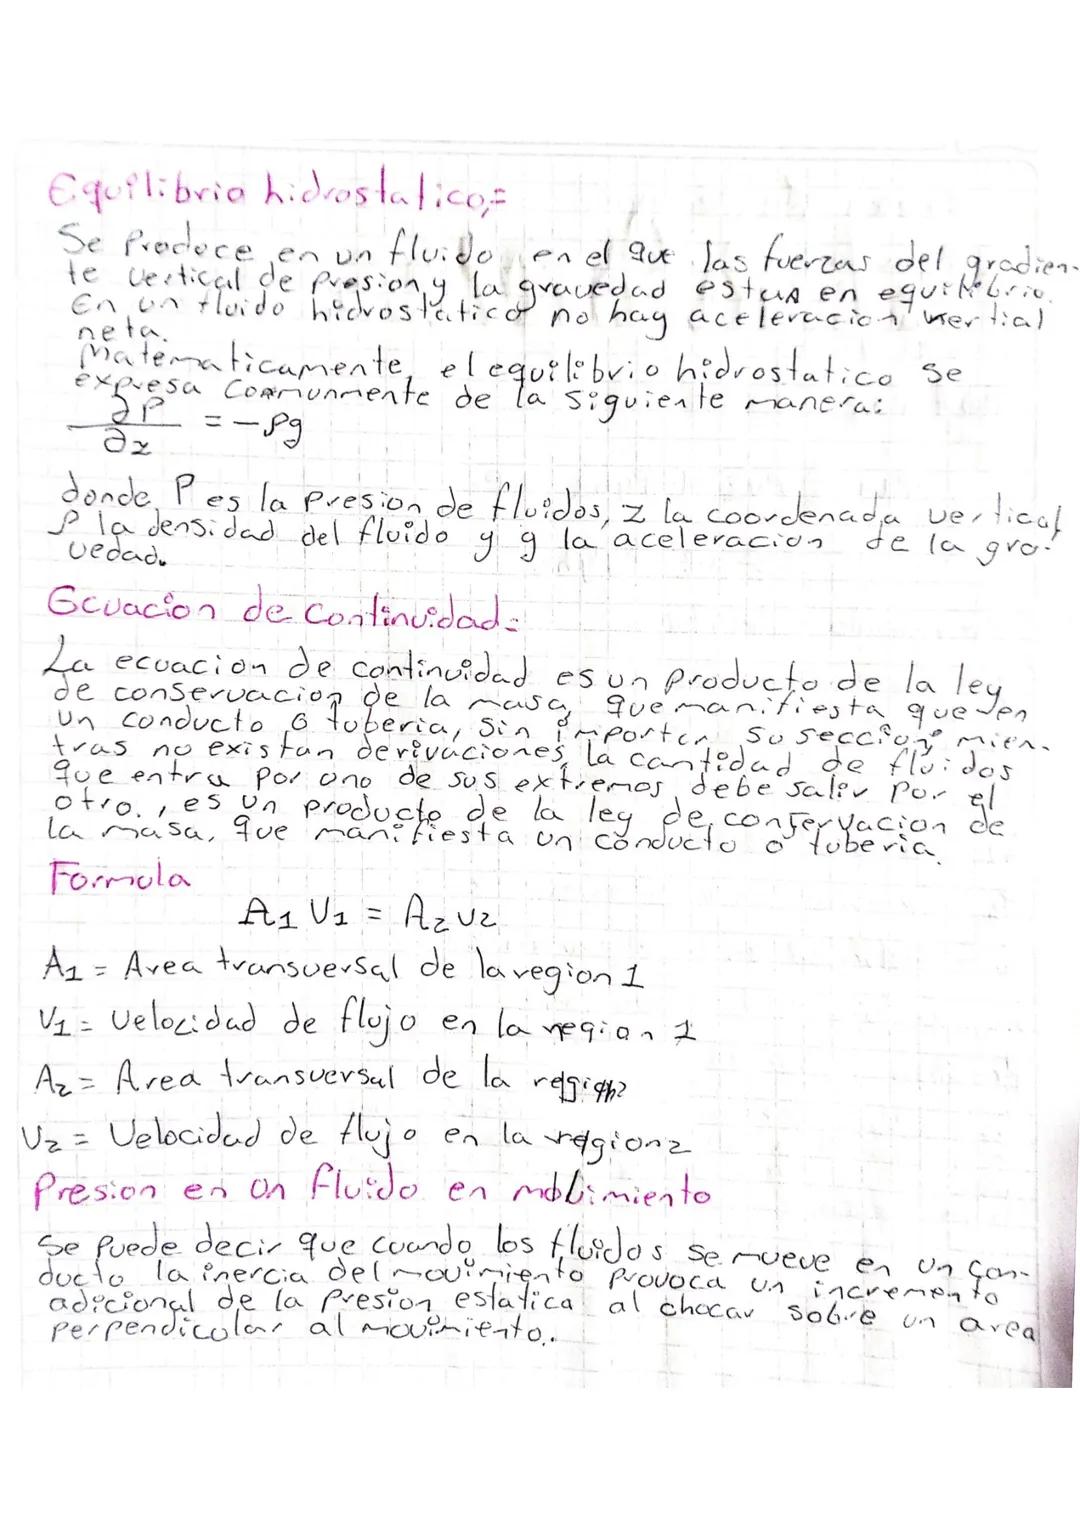 Equilibrio hidrostatico,=
Se Produce en un fluido en el que las fuerzas del gradien-
te vertical de presion y la gravedad estan en equilibrio.
En un fluido hidrostatico no hay aceleracion vertial
neta.
Matematicamente, el equilibrio hidrostatico se
expresa comunmente de la siguiente manera:
∂P
= -ρg
∂z
donde P es la Presion de fluidos, z la coordenada vertical
ρ la densidad del fluido y g la aceleracion de la gra-
vedad.
Ecuacion de Continuidad=
La ecuacion de continuidad es un producto de la ley
de conservacion de la masa, que manifiesta que en
un conducto o tuberia, sin importar su seccion, mien-
tras no existan derivaciones, la cantidad de fluidos
que entra por uno de sus extremos debe salir por el
otro., es un producto de la ley de conservacion de
la masa, que manifiesta un conducto o tuberia.
Formula
A1 V1 = A2 V2
A1 = Area transversal de la region 1
V1 = Velocidad de flujo en la region 1
A2 = Area transversal de la region2
V2 = Velocidad de flujo en la region2
Presion en un fluido en mobimiento
Se Puede decir que cuando los fluidos se mueve en un con-
ducto la inercia del movimiento provoca un incremento
adicional de la Presion estatica al chocar sobre un area
perpendicular al movimiento..